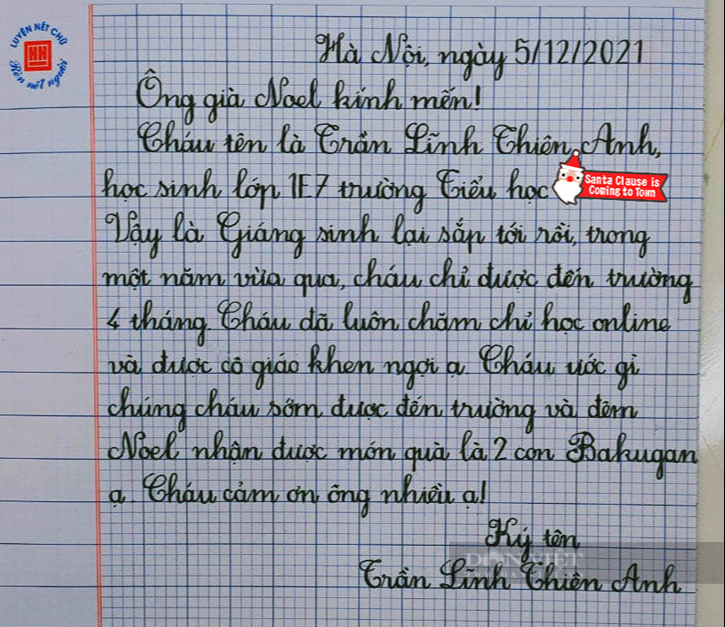 LUYỆN NÉT CHỮ
HH
Rèn nết người
Hà Nội, ngày 5/12/2021
Ông già Noel kính mến!
Cháu tên là Trần Lĩnh Thiên Anh,
học sinh lớp 1E7 trường Tiểu học
Santa Clause is
Coming to Town
Vậy là Giáng sinh lại sắp tới rồi, trong
một năm vừa qua, cháu chỉ được đến trường
4 tháng. Cháu đã luôn chăm chỉ học online
và được cô giáo khen ngợi ạ. Cháu ước gì
chúng cháu sớm được đến trường và đêm
Noel nhận được món quà là 2 con Bakugan
ạ. Cháu cảm ơn ông nhiều ạ!
Ký tên
DÂN VIỆT
Trần Lĩnh Thiên Anh